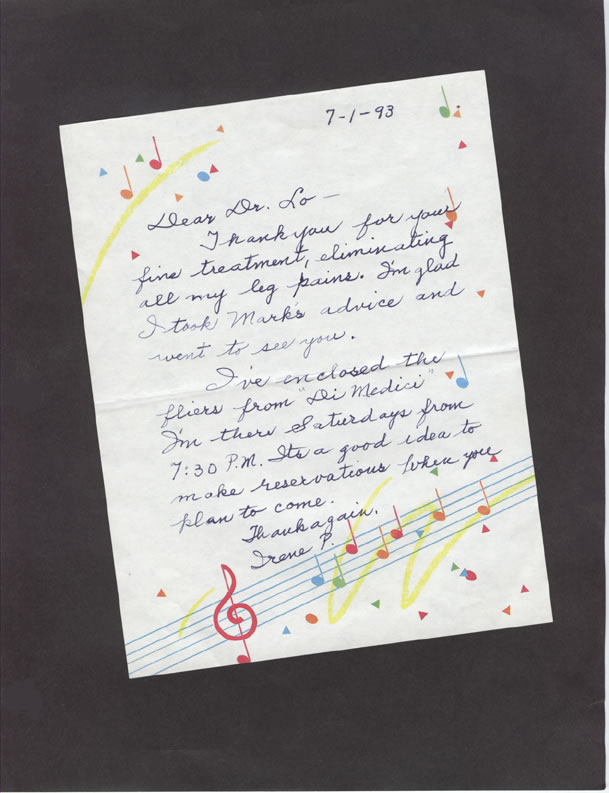 7-1-93
Dear Dr. Lo —
Thank you for your
fine treatment, eliminating
all my leg pains. I'm glad
I took Mark's advice and
went to see you.
I've enclosed the
fliers from "Di Medici"
I'm there Saturdays from
7:30 P.M. Its a good idea to
make reservations when you
plan to come.
Thank again,
Irene P.